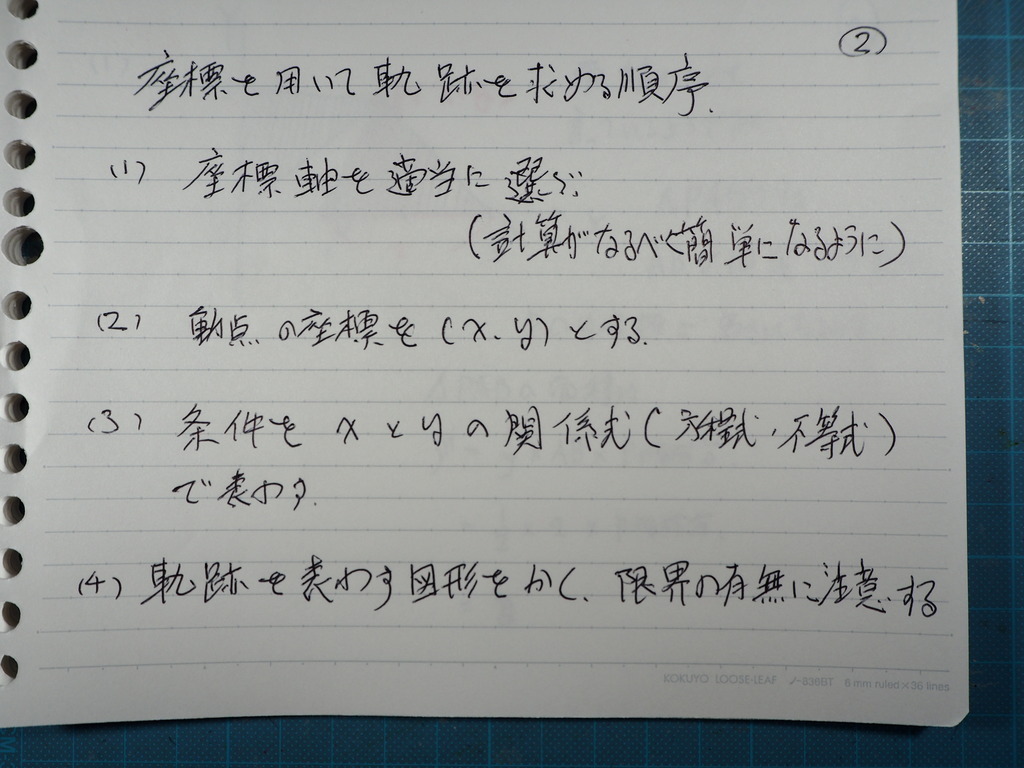 ②
座標を用いて軌跡を求める順序.
(1) 座標軸を適当に選ぶ
(計算がなるべく簡単になるように)
(2) 動点の座標を(x、y)とする.
(3) 条件をxとyの関係式(方程式・不等式)
で表わす.
(4) 軌跡を表わす図形をかく、限界の有無に注意する
KOKUYO LOOSE-LEAF ノ-836BT 6 mm ruled×36 lines